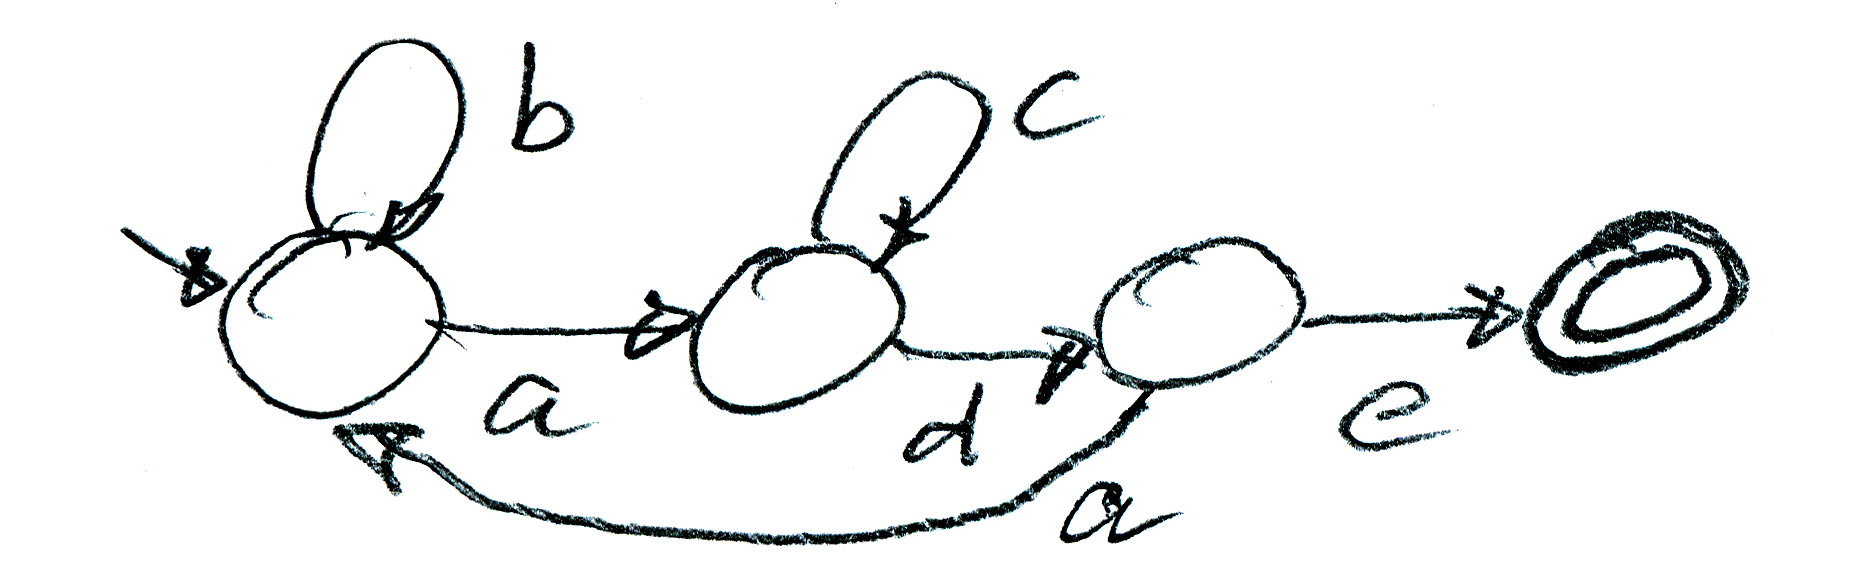 b
c
a
d
e
a